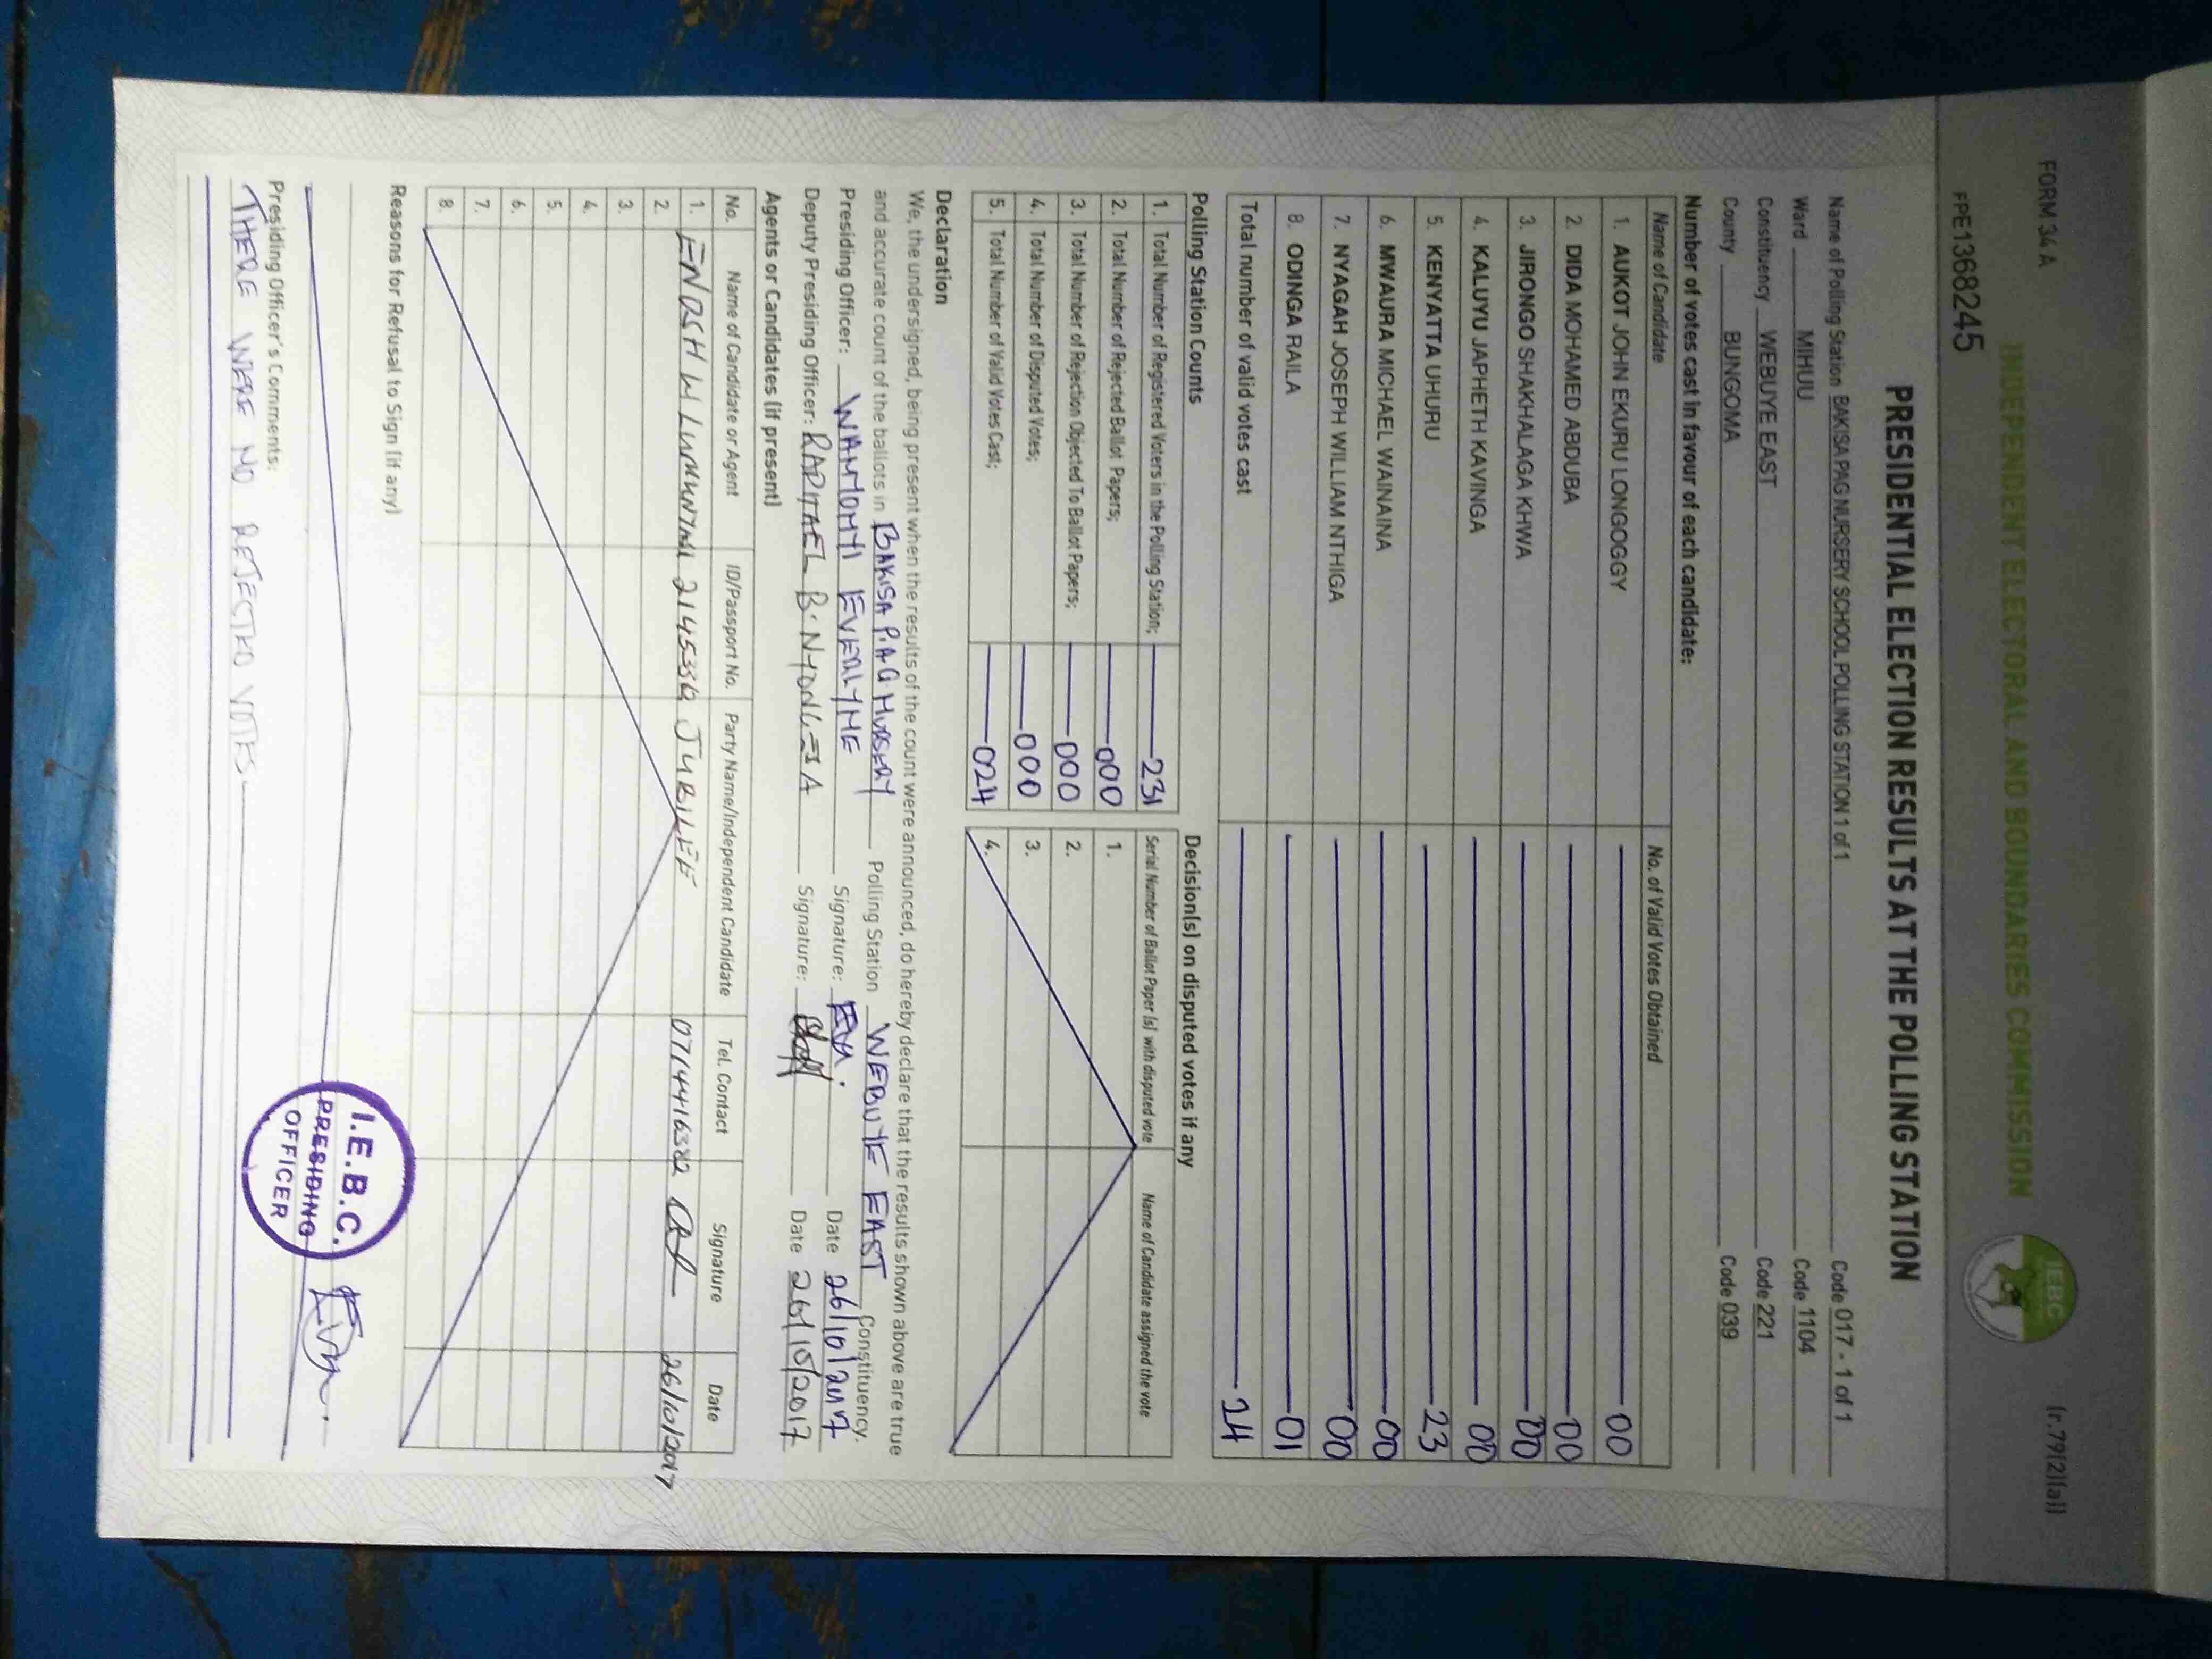 FORM 34 A
(r.79(2)(a))
INDEPENDENT ELECTORAL AND BOUNDARIES COMMISSION
IEBC
FPE1368245
PRESIDENTIAL ELECTION RESULTS AT THE POLLING STATION
Name of Polling Station BAKISA PAG NURSERY SCHOOL POLLING STATION 1 of 1 Code 017 - 1 of 1
Ward MIHUU Code 1104
Constituency WEBUYE EAST Code 221
County BUNGOMA Code 039
Number of votes cast in favour of each candidate:
Name of Candidate No. of Valid Votes Obtained
1. AUKOT JOHN EKURU LONGOGGY 00
2. DIDA MOHAMED ABDUBA 00
3. JIRONGO SHAKHALAGA KHWA 00
4. KALUYU JAPHETH KAVINGA 00
5. KENYATTA UHURU 23
6. MWAURA MICHAEL WAINAINA 00
7. NYAGAH JOSEPH WILLIAM NTHIGA 00
8. ODINGA RAILA 01
Total number of valid votes cast 24
Polling Station Counts Decision(s) on disputed votes if any
1. Total Number of Registered Voters in the Polling Station; 231 Serial Number of Ballot Paper (s) with disputed vote Name of Candidate assigned the vote
2. Total Number of Rejected Ballot Papers; 000 1.
3. Total Number of Rejection Objected To Ballot Papers; 000 2.
4. Total Number of Disputed Votes; 000 3.
5. Total Number of Valid Votes Cast; 024 4.
Declaration
We, the undersigned, being present when the results of the count were announced, do hereby declare that the results shown above are true
and accurate count of the ballots in BAKISA P.A.G NURSERY Polling Station WEBUYE EAST Constituency.
Presiding Officer: WAMOMYI EVERLYNE Signature: Date 26/10/2017
Deputy Presiding Officer: RAPHAEL B. Signature: Date 26/10/2017
Agents or Candidates (if present)
No. Name of Candidate or Agent ID/Passport No. Party Name/Independent Candidate Tel. Contact Signature Date
1. ENOSH W JUBILEE 26/10/2017
2.
3.
4.
5.
6.
7.
8.
Reasons for Refusal to Sign (if any)
Presiding Officer's Comments:
THERE WERE NO REJECTED VOTES
I.E.B.C.
PRESIDING
OFFICER